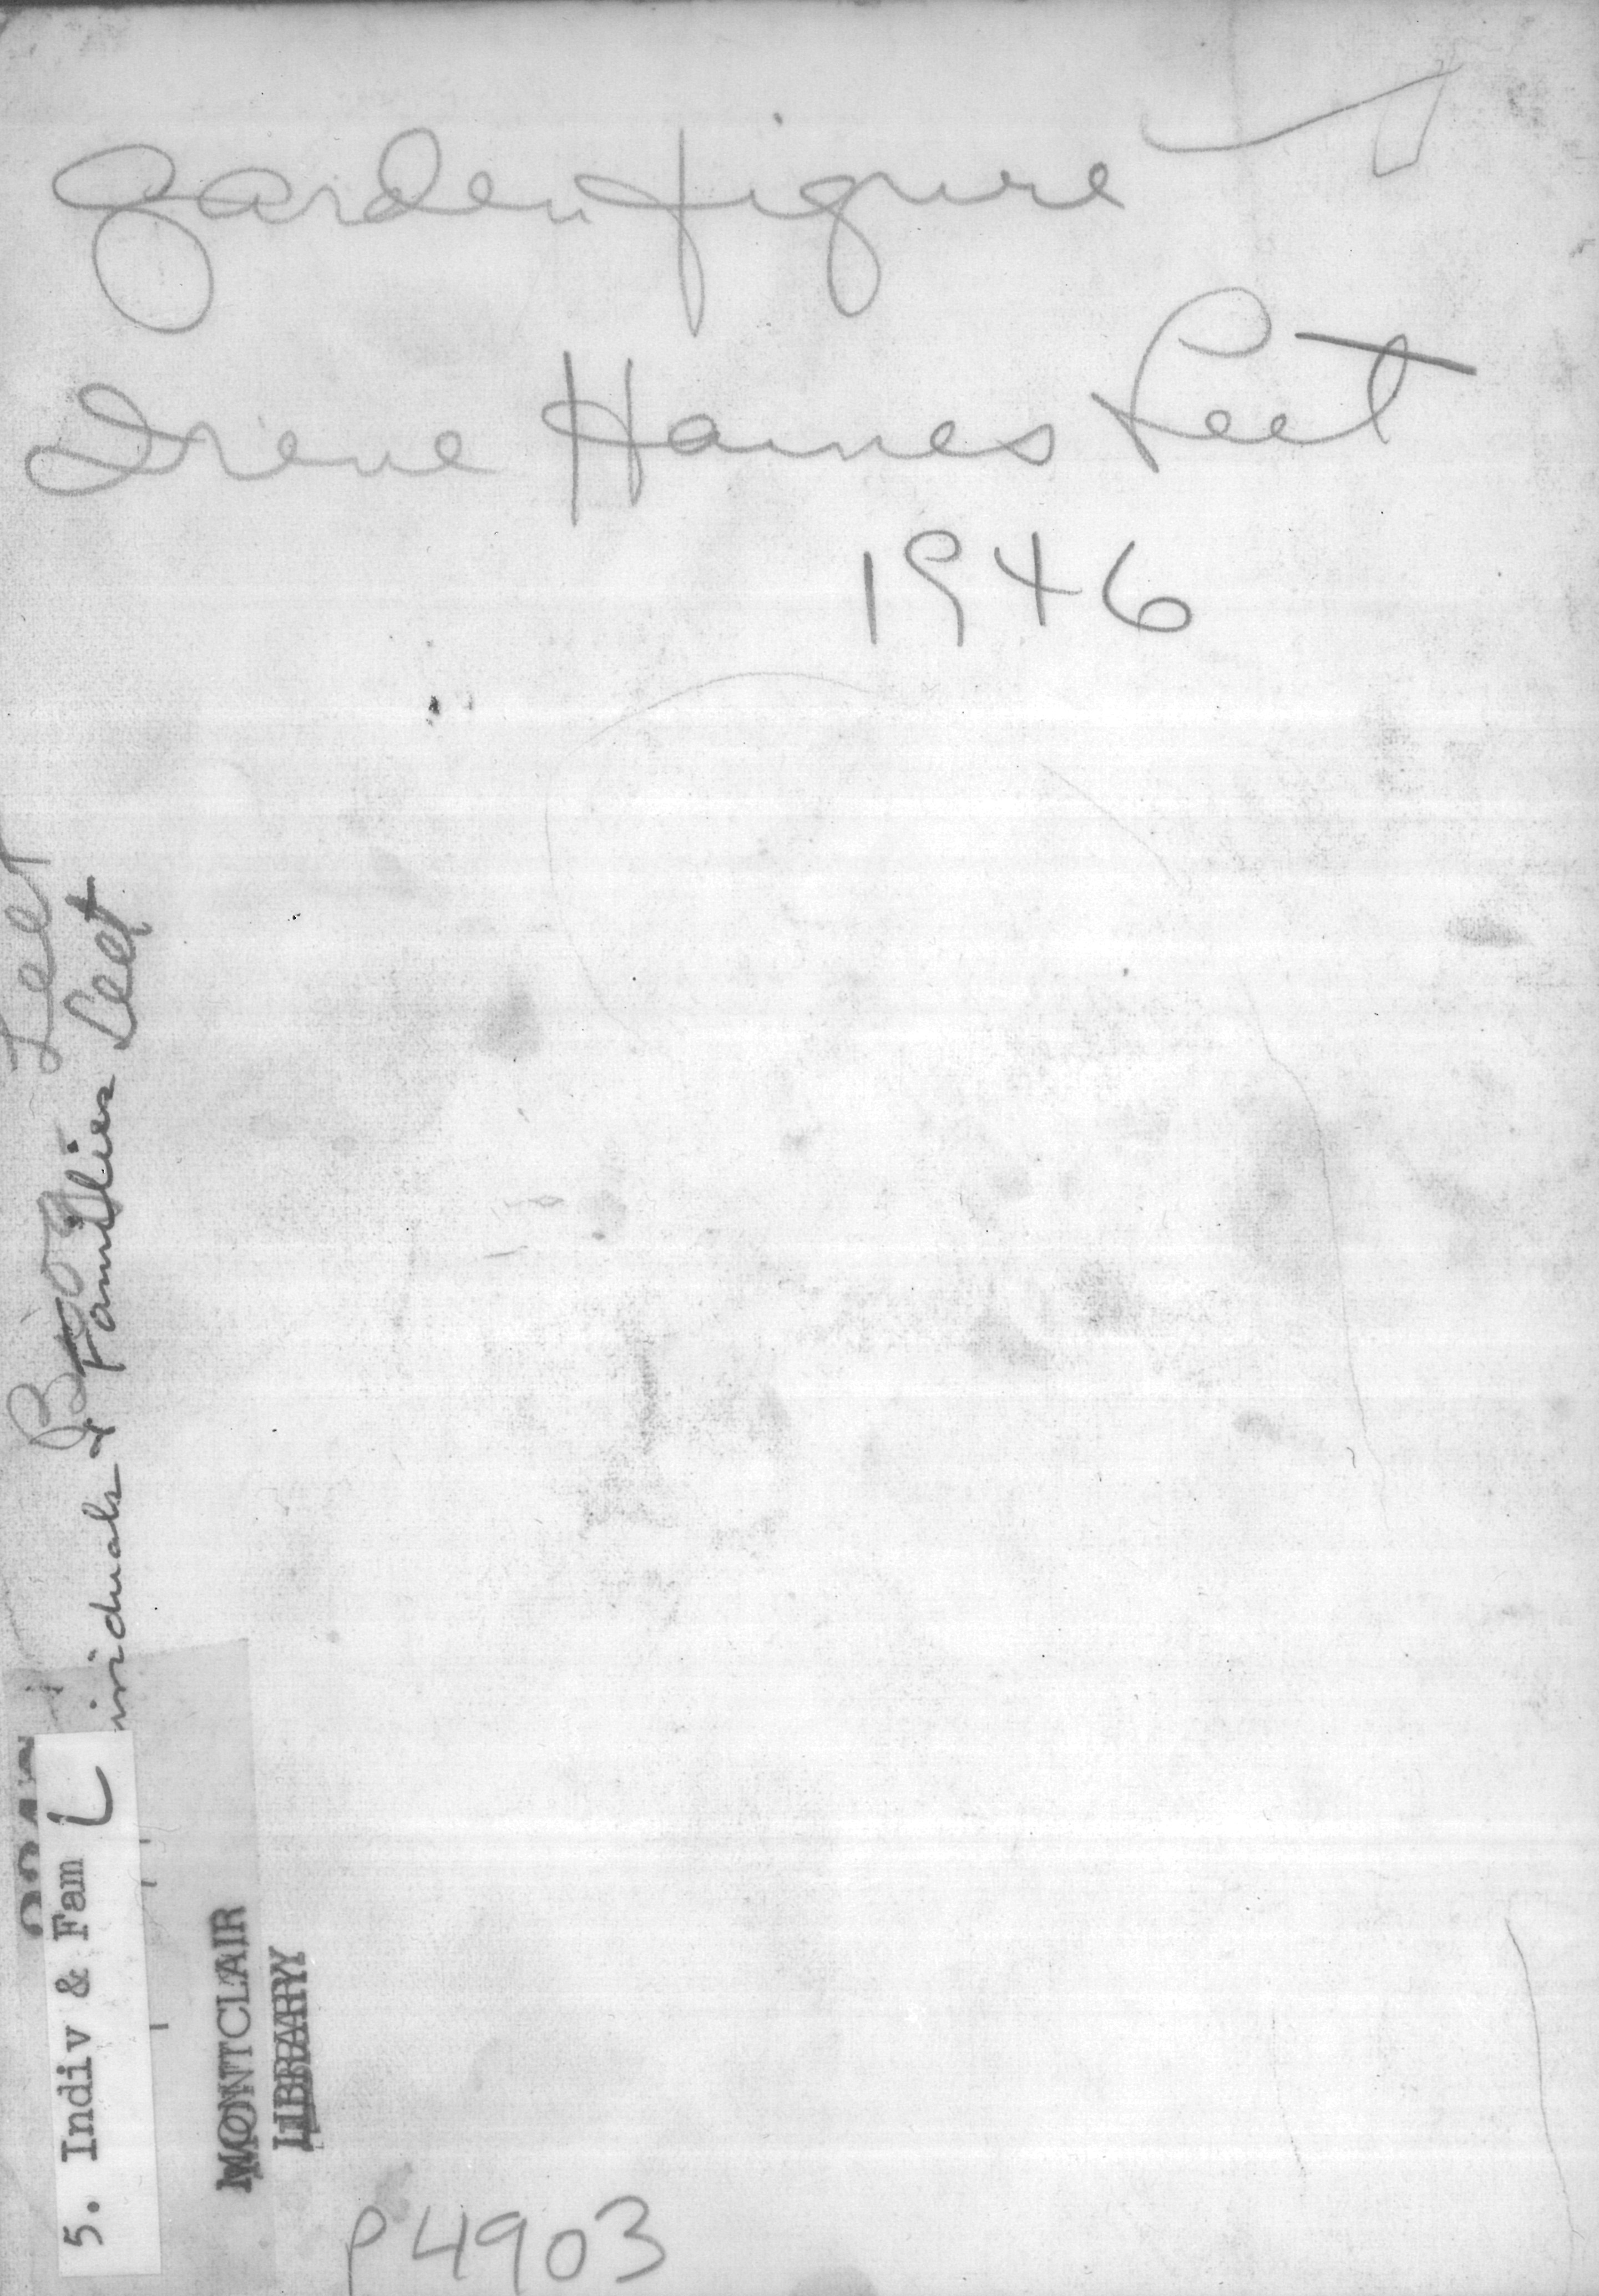 garden figure
Irene Haines Leet
1946
Leet
ividuals & Families Leet
5. Indiv & Fam L
MONTCLAIR
LIBRARY
P4903